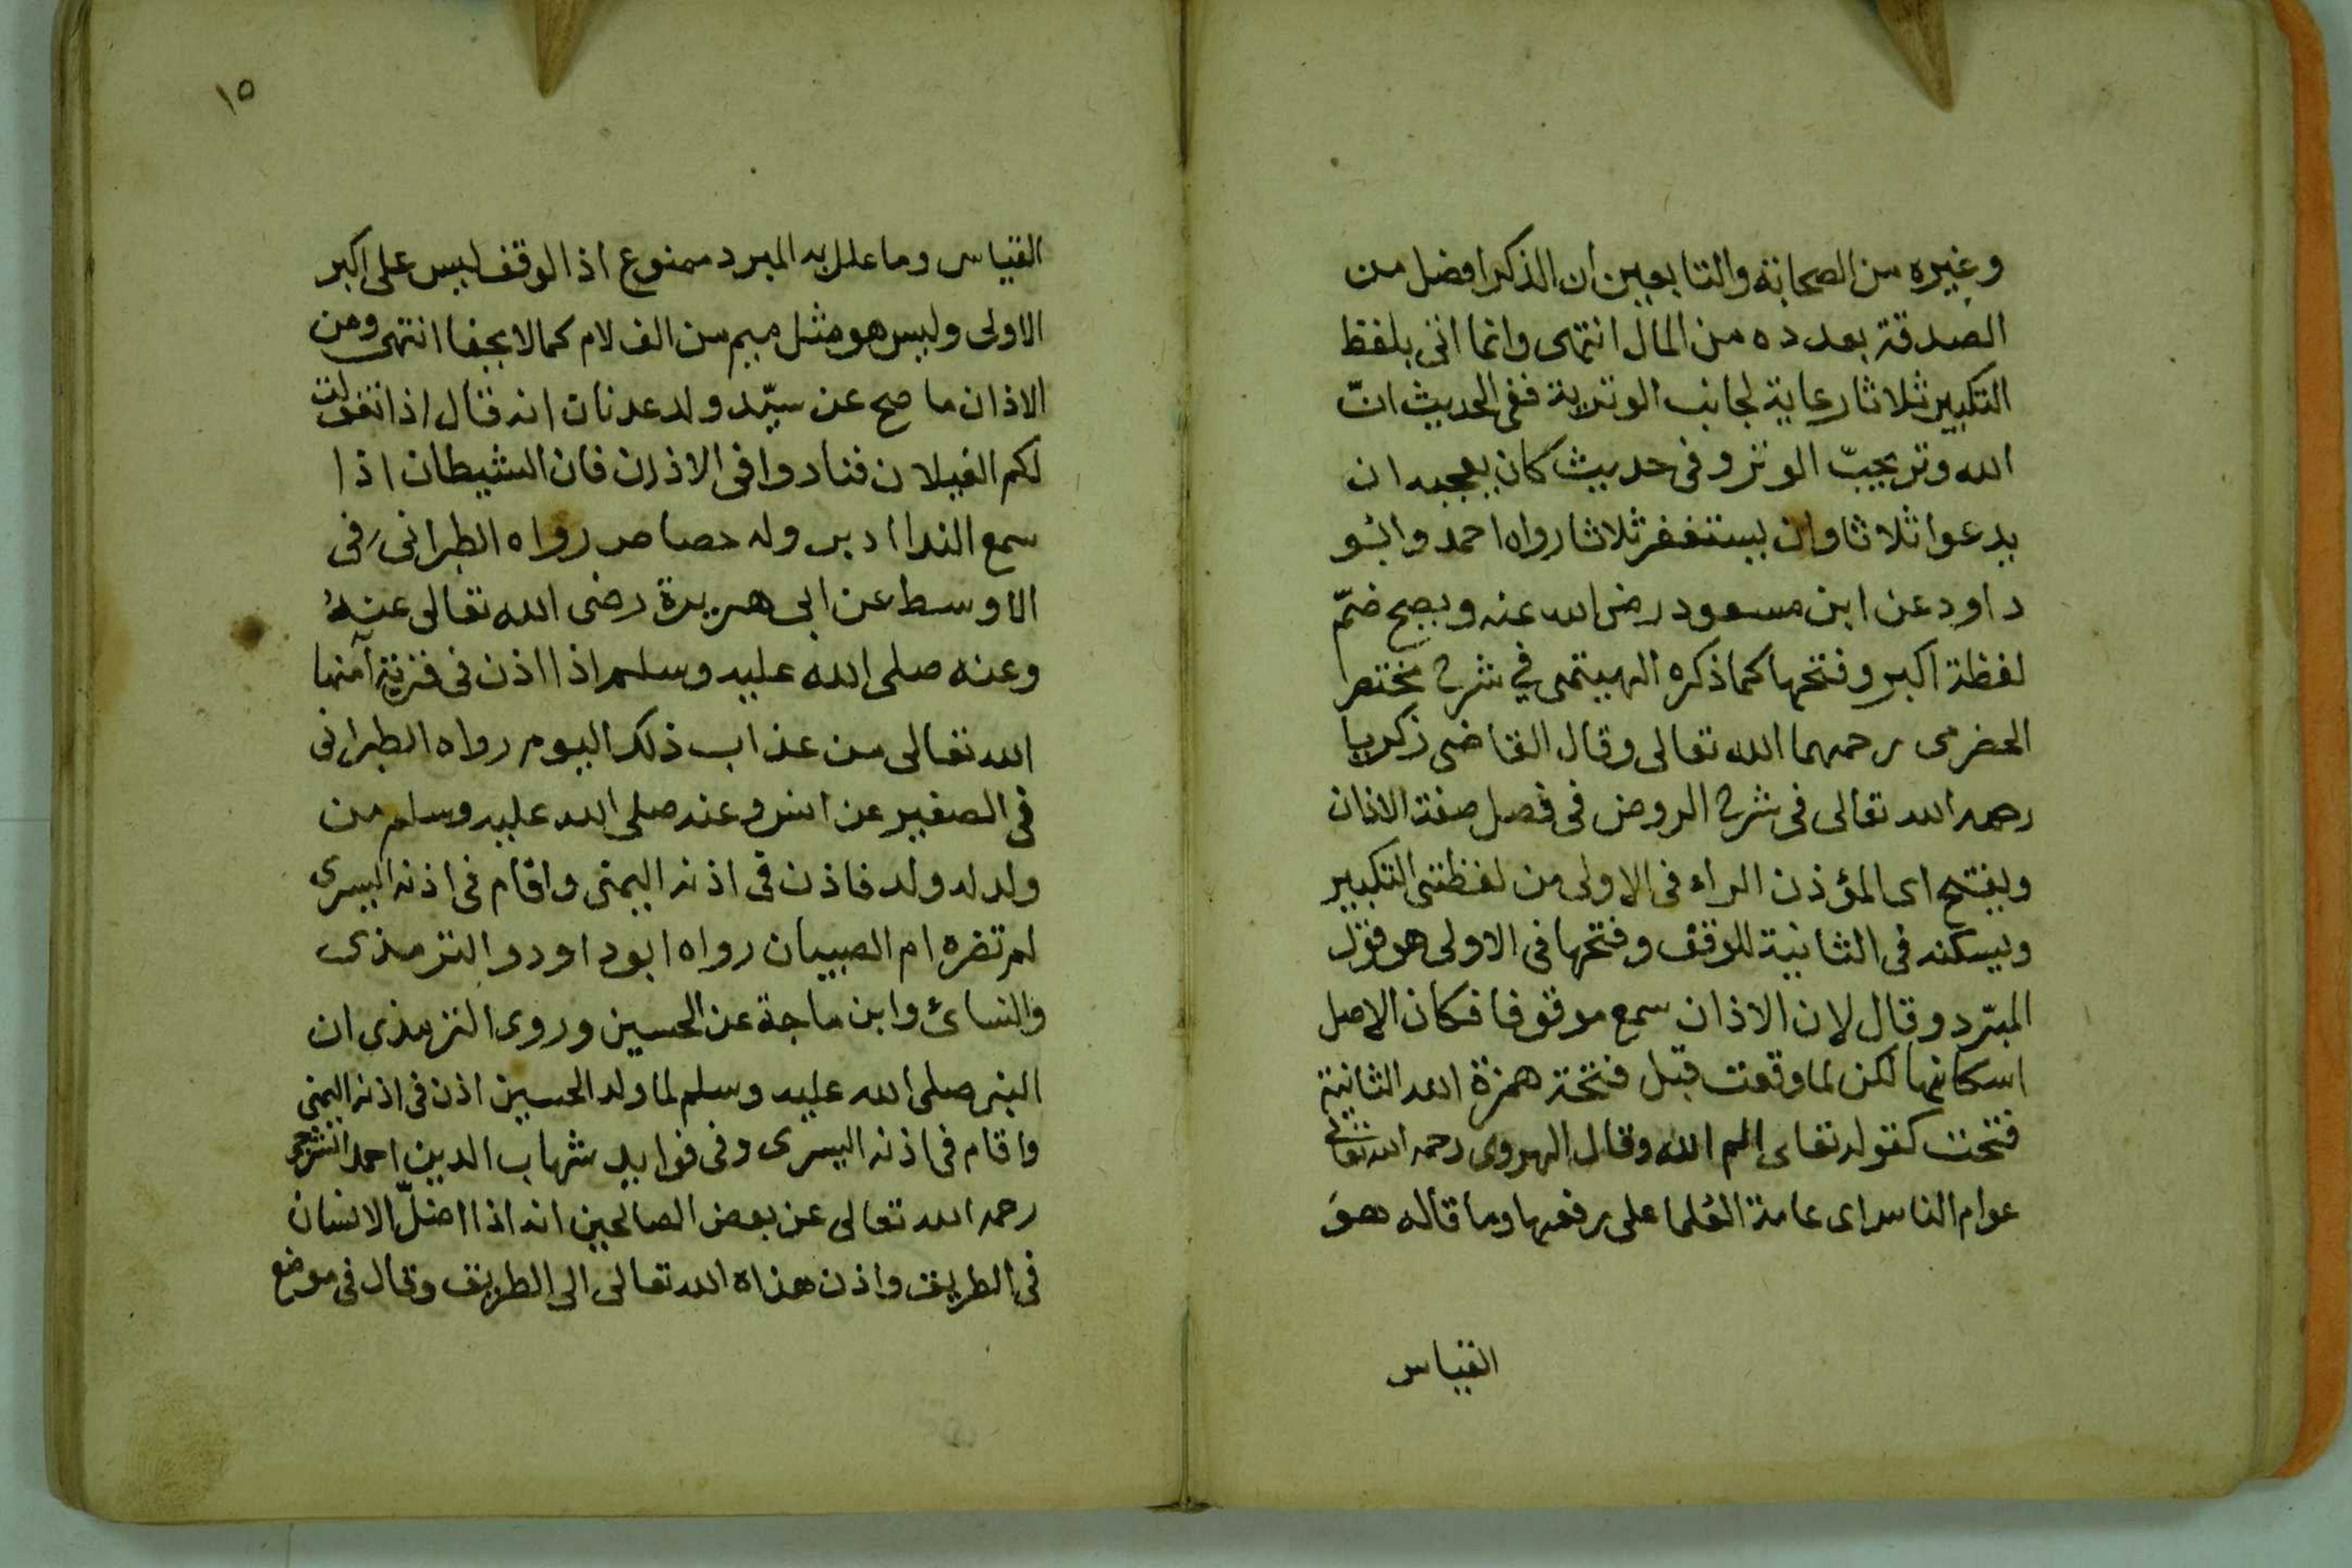 وغيره من الصحابة والتابعين ان الذكر افضل من
الصدقة بعدده من المال انتهى وانما اتى بلفظ
التكبير ثلاثا رعاية لجانب الوترية ففى الحديث انّ
الله وتر يحبّ الوتر وفى حديث كان يعجبه ان
يدعوا ثلاثا وان يستغفر ثلاثا رواه احمد وابُو
داود عن ابن مسعود رضى الله عنه ويصح ضمّ
لفظة اكبر وفتحها كما ذكره الهيتمى في شرح مختصر
الحضرمى رحمهما الله تعالى وقال القاضى زكريا
رحمه الله تعالى فى شرح الروض فى فصل صفة الاذان
ويفتح اى المؤذن الراء فى الاولى من لفظتى التكبير
ويسكنه فى الثانية للوقف وفتحها فى الاولى هو قول
المبّرد وقال لان الاذان سمع موقوفا فكان الاصل
اسكانها لكن لما وقعت قبل فتحة همزة الله الثانية
فتحت كقوله تعالى الم الله وقال الهروى رحمه الله تعالى
عوام الناس اى عامة العُلما على رفعها وما قاله هوَ
القياس
١٥
القياس وما علل به المبرد ممنوع اذ الوقف ليس على اكبر
الاولى وليس هو مثل ميم من الف لام كما لا يخفا انتهى ومن
الاذان ما صح عن سيّد ولد عدنان انه قال اذا تغولت
لكم الغيلان فنادوا فى الاذان فان الشيطان اذا
سمع الندا ادبر وله حصاص رواه الطبرانى فى
الاوسط عن ابى هريرة رضى الله تعالى عنهُ
وعنه صلى الله عليه وسلم اذا اذن فى قرية آمنها
الله تعالى من عذاب ذلك اليوم رواه الطبرانى
فى الصغير عن انس وعنه صلى الله عليه وسلم من
ولد له ولد فاذن فى اذنه اليمنى واقام فى اذنه اليسرى
لم تضره ام الصبيان رواه ابو داود والترمذى
والنسائ وابن ماجة عن الحسين وروى الترمذى ان
النبى صلى الله عليه وسلم لما ولد الحسين اذن فى اذنه اليمنى
واقام فى اذنه اليسرى وفى فوايد شهاب الدين احمد الشرجى
رحمه الله تعالى عن بعض الصالحين انه اذا اضلّ الانسان
فى الطريق واذن هداه الله تعالى الى الطريق وقال فى موضع